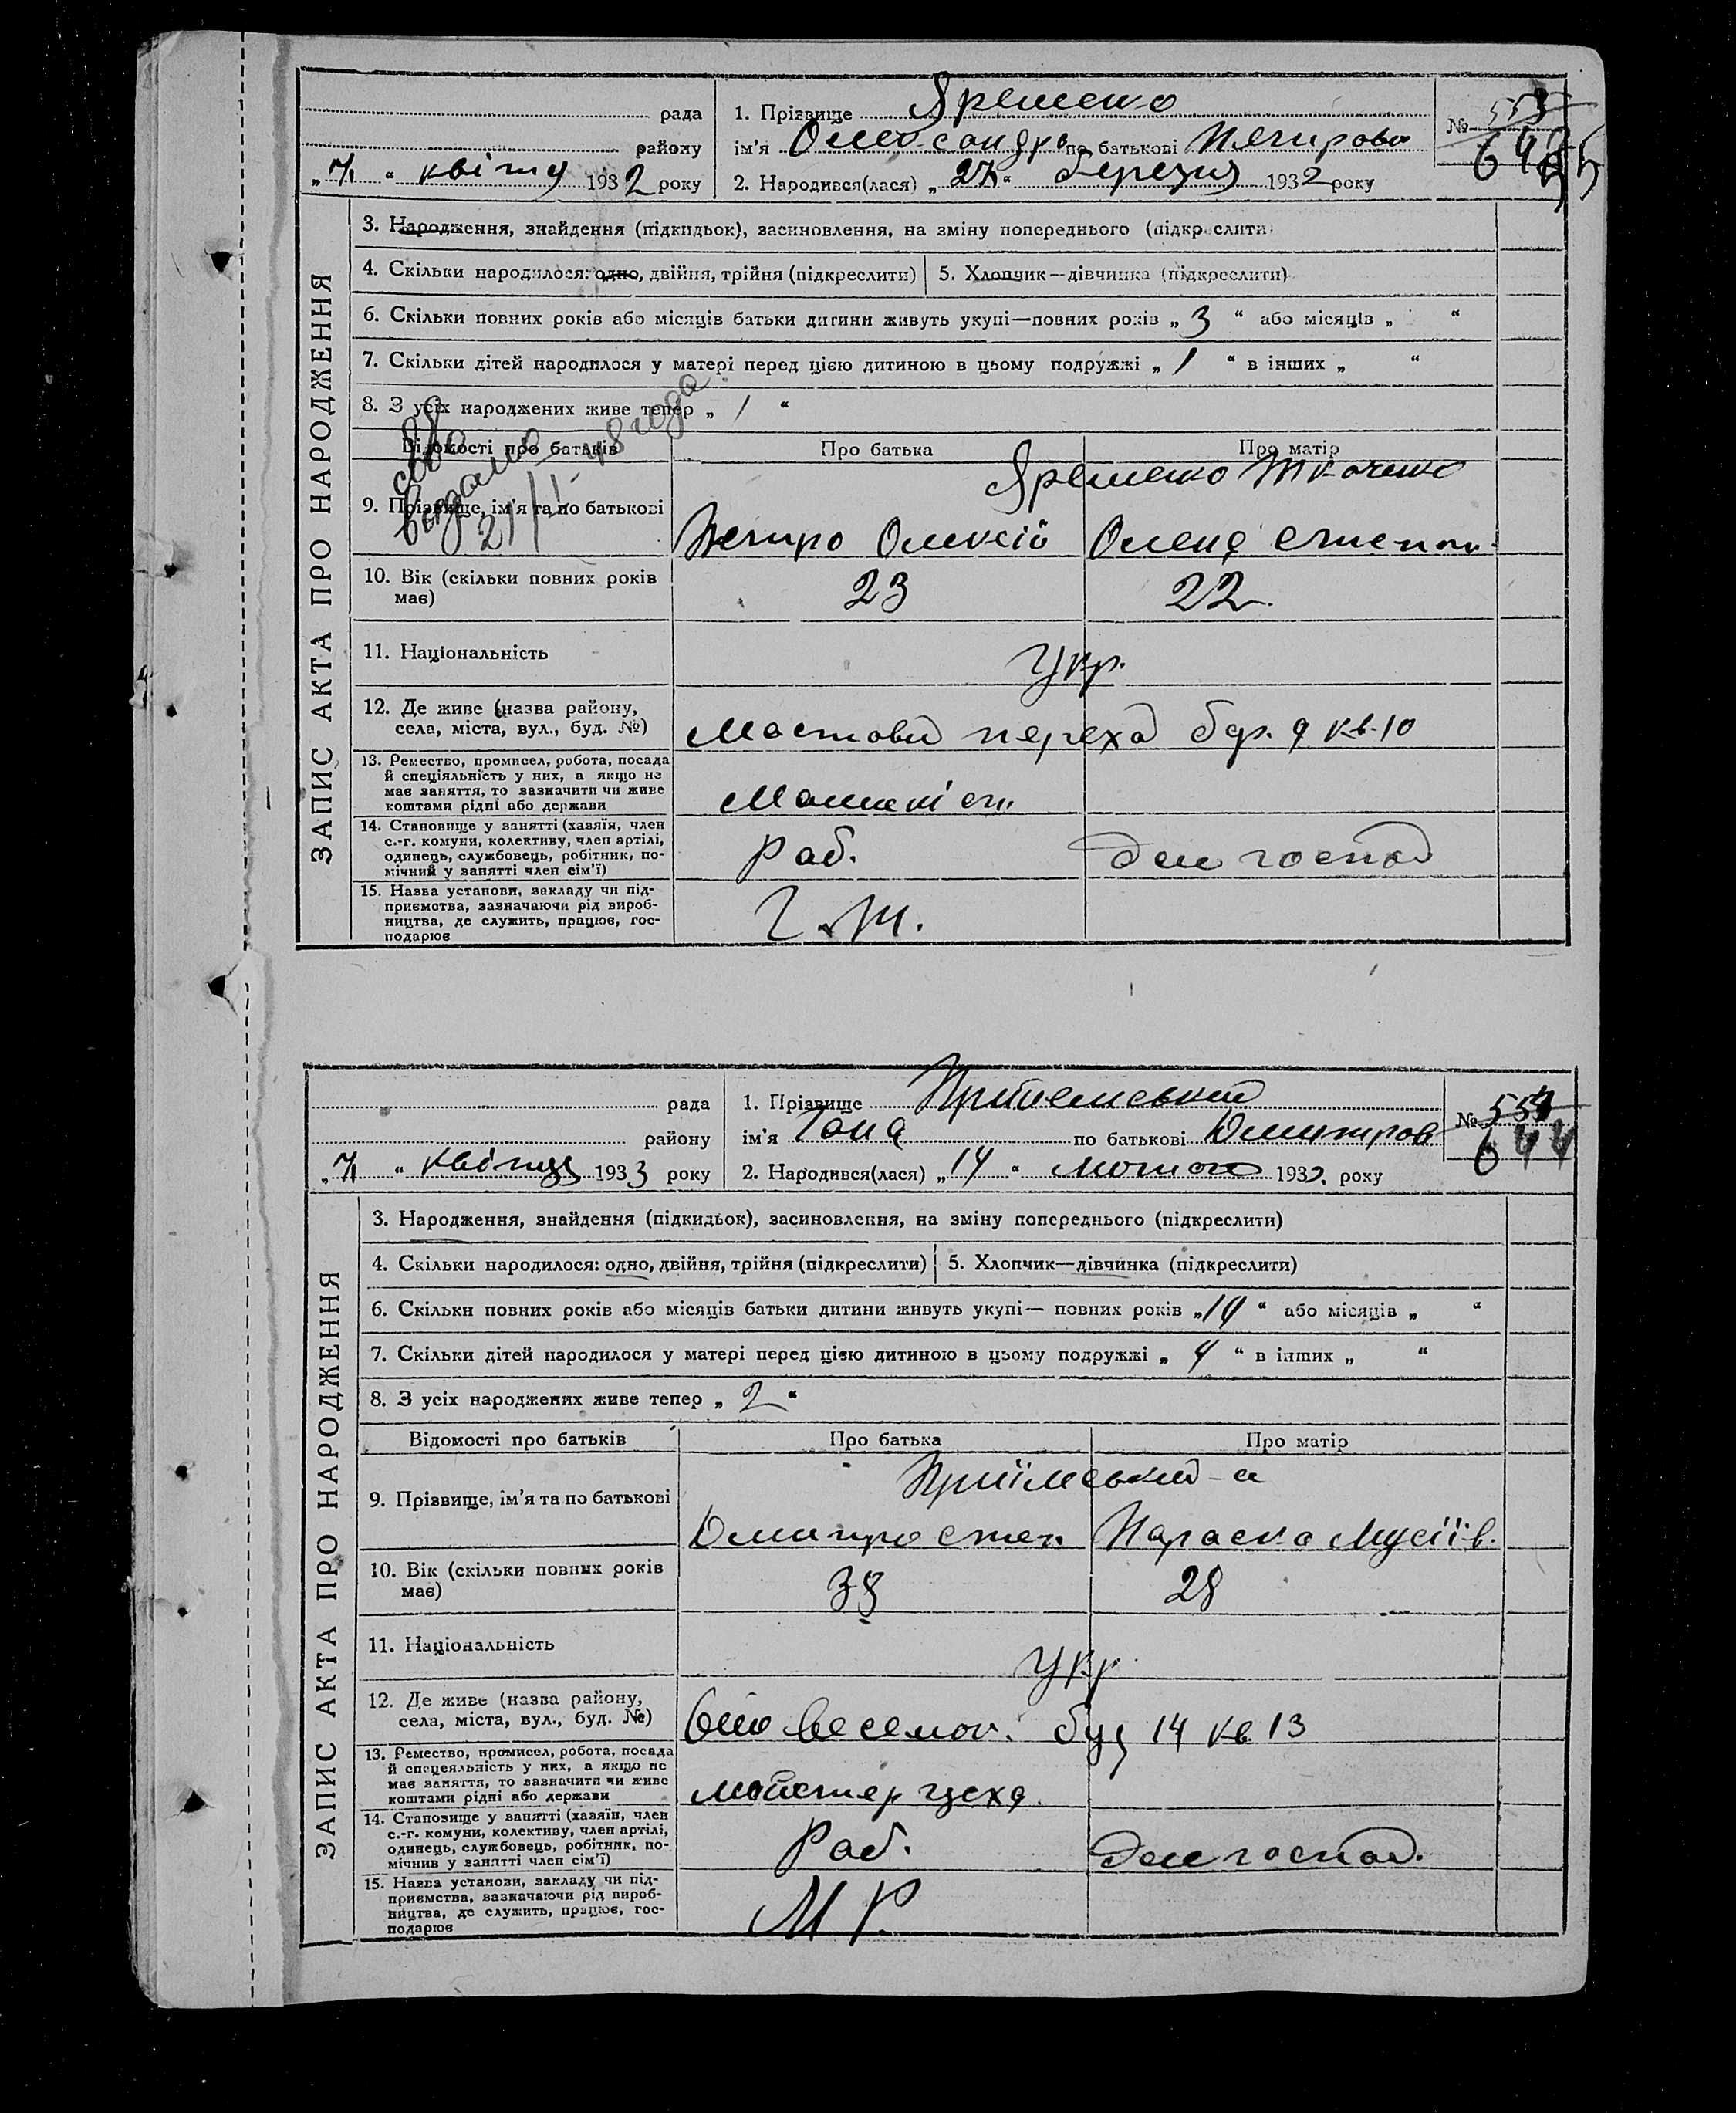 рада
району
„ 7. “ квітня 1932 року
1. Прізвище Яременко
ім'я Олександра по батькові Петрова
2. Народився(лася) „ 27 “ березня 1932 року
№ 553
ЗАПИС АКТА ПРО НАРОДЖЕННЯ
3. Народження, знайдення (підкидьок), засиновлення, на зміну попереднього (підкреслити)
4. Скільки народилося: одно, двійня, трійня (підкреслити)
5. Хлопчик—дівчинка (підкреслити)
6. Скільки повних років або місяців батьки дитини живуть укупі—повних років „ 3 “ або місяців „ “
7. Скільки дітей народилося у матері перед цією дитиною в цьому подружжі „ 1 “ в інших „ “
8. З усіх народжених живе тепер „ 1 “
Відомості про батьків
Про батька
Про матір
Яременко Ткаченко
9. Прізвище, ім'я та по батькові
Петро Олексій
Олена Степан.
10. Вік (скільки повних років
має)
23
22
11. Національність
Укр.
12. Де живе (назва району,
села, міста, вул., буд. №)
Мостовий переход буд. 9 кв. 10
13. Ремество, промисел, робота, посада
й спеціяльність у них, а якщо не
має заняття, то зазначити чи живе
коштами рідні або держави
Машиніст
14. Становище у занятті (хавяїн, член
с.-г. комуни, колективу, член артілі,
одинець, службовець, робітник, по-
мічний у занятті член сім'ї)
Роб.
дом господ
15. Назва установи, закладу чи під-
приємства, зазначаючи рід вироб-
ництва, де служить, працює, гос-
подарює
рада
району
„ 7. “ квітня 1933 року
1. Прізвище
ім'я Ганна по батькові Дмитров
2. Народився(лася) „ 14 “ лютого 193 року
№ 554
644
ЗАПИС АКТА ПРО НАРОДЖЕННЯ
3. Народження, знайдення (підкидьок), засиновлення, на зміну попереднього (підкреслити)
4. Скільки народилося: одно, двійня, трійня (підкреслити)
5. Хлопчик—дівчинка (підкреслити)
6. Скільки повних років або місяців батьки дитини живуть укупі— повних років „ 10 “ або місяців „ “
7. Скільки дітей народилося у матері перед цією дитиною в цьому подружжі „ 4 “ в інших „ “
8. З усіх народжених живе тепер „ 2 “
Відомості про батьків
Про батька
Про матір
Приїмський-а
9. Прізвище, ім'я та по батькові
Дмитро Степ.
Параска Мусіїв.
10. Вік (скільки повних років
має)
38
28
11. Національність
Укр
12. Де живе (назва району,
села, міста, вул., буд. №)
буд 14 кв. 13
13. Ремество, промисел, робота, посада
й спецеяльність у них, а якщо не
має заняття, то зазначити чи живе
коштами рідні або держави
майстер цеха
14. Становище у занятті (хавяїн, член
с.-г. комуни, колективу, член артілі,
одинець, службовець, робітник, по-
мічнив у занятті член сім'ї)
Роб.
дом господ.
15. Назва установи, закладу чи під-
приємства, зазначаючи рід вироб-
ництва, де служить, працює, гос-
подарює
М Р.